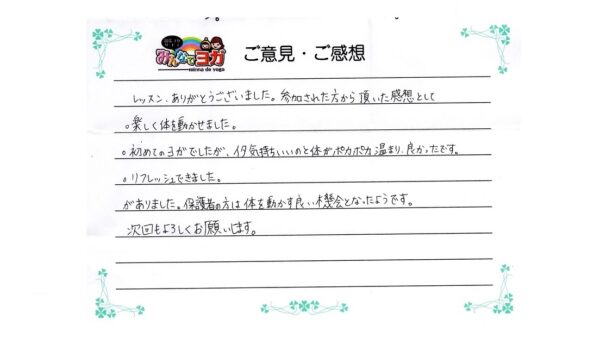 みんなでヨガ
minna de yoga
ご意見・ご感想
レッスン、ありがとうございました。参加された方から頂いた感想として
○楽しく体を動かせました。
○初めてのヨガでしたが、イタ気持ちいいのと体がポカポカ温まり、良かったです。
○リフレッシュできました。
がありました。保護者の方は体を動かす良い機会となったようです。
次回もよろしくお願いします。